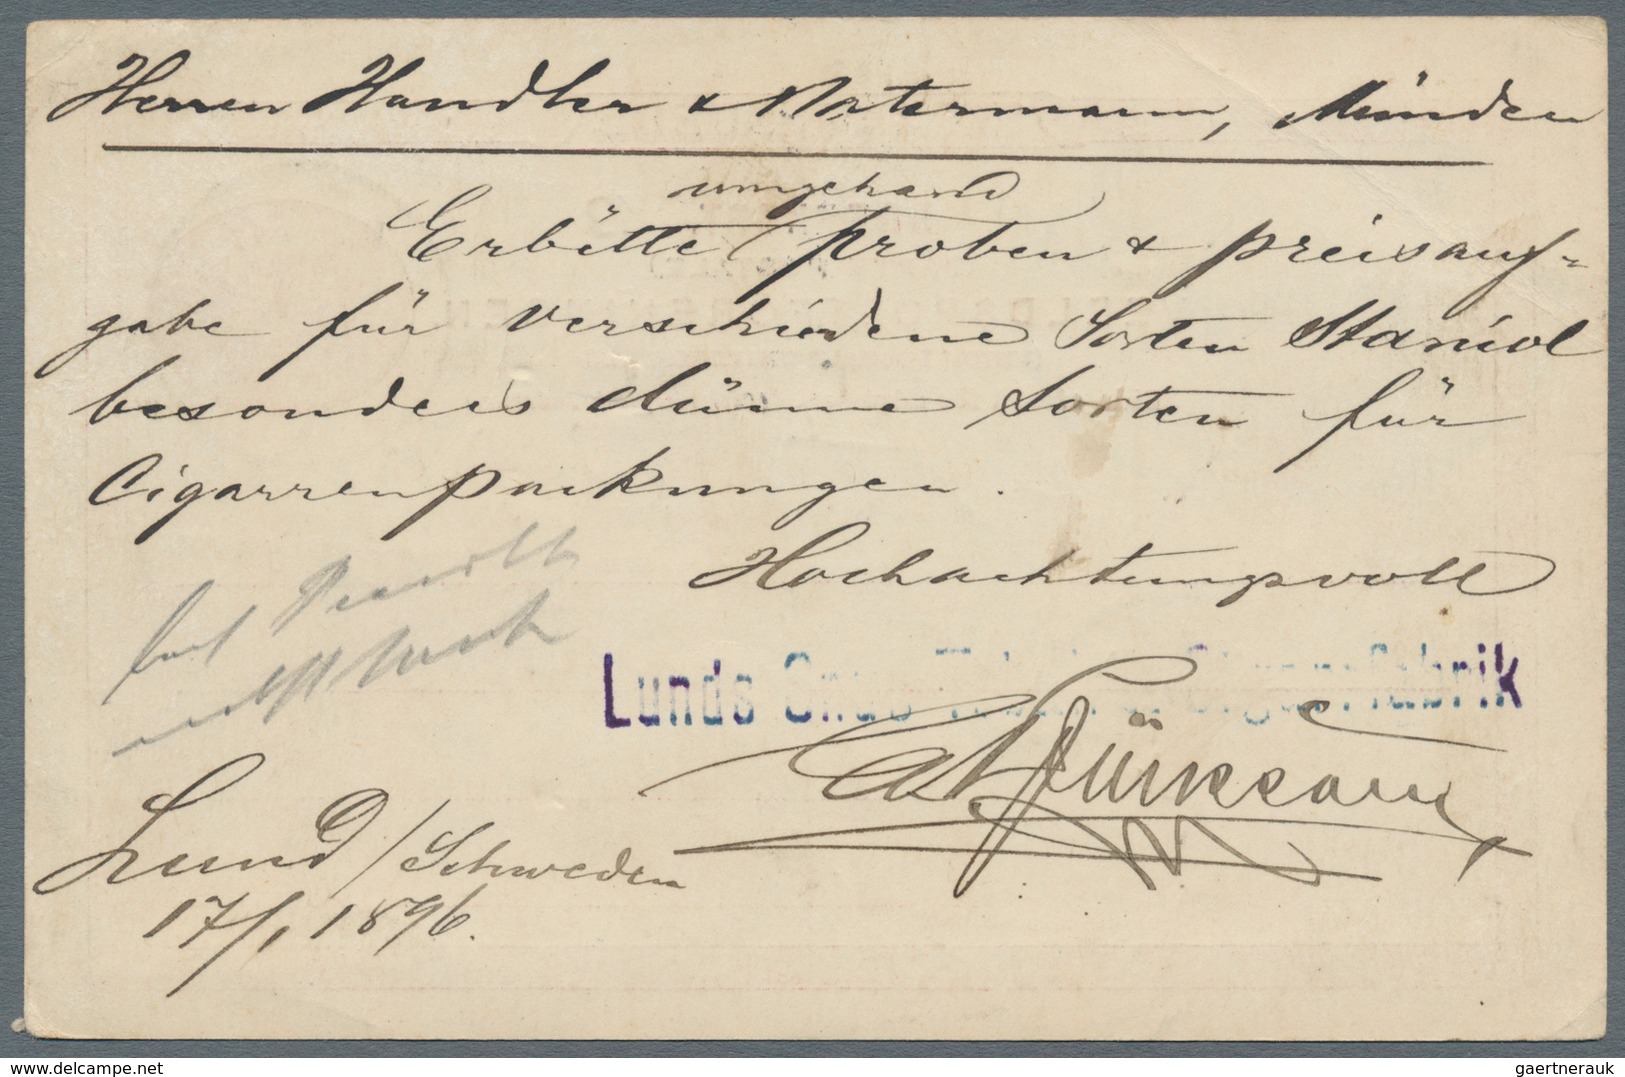 Herren Handler & Natermann, Münden
umgehend
Erbitte proben & preisauf-
gabe für verschiedene Sorten Staniol
besonders dünne Sorten für
Cigarrenpackungen.
Hochachtungsvoll
Lunds Snus Cigarrfabrik
Lund / Schweden
17/1 1896.
www.delcampe.net
gaertnerauk